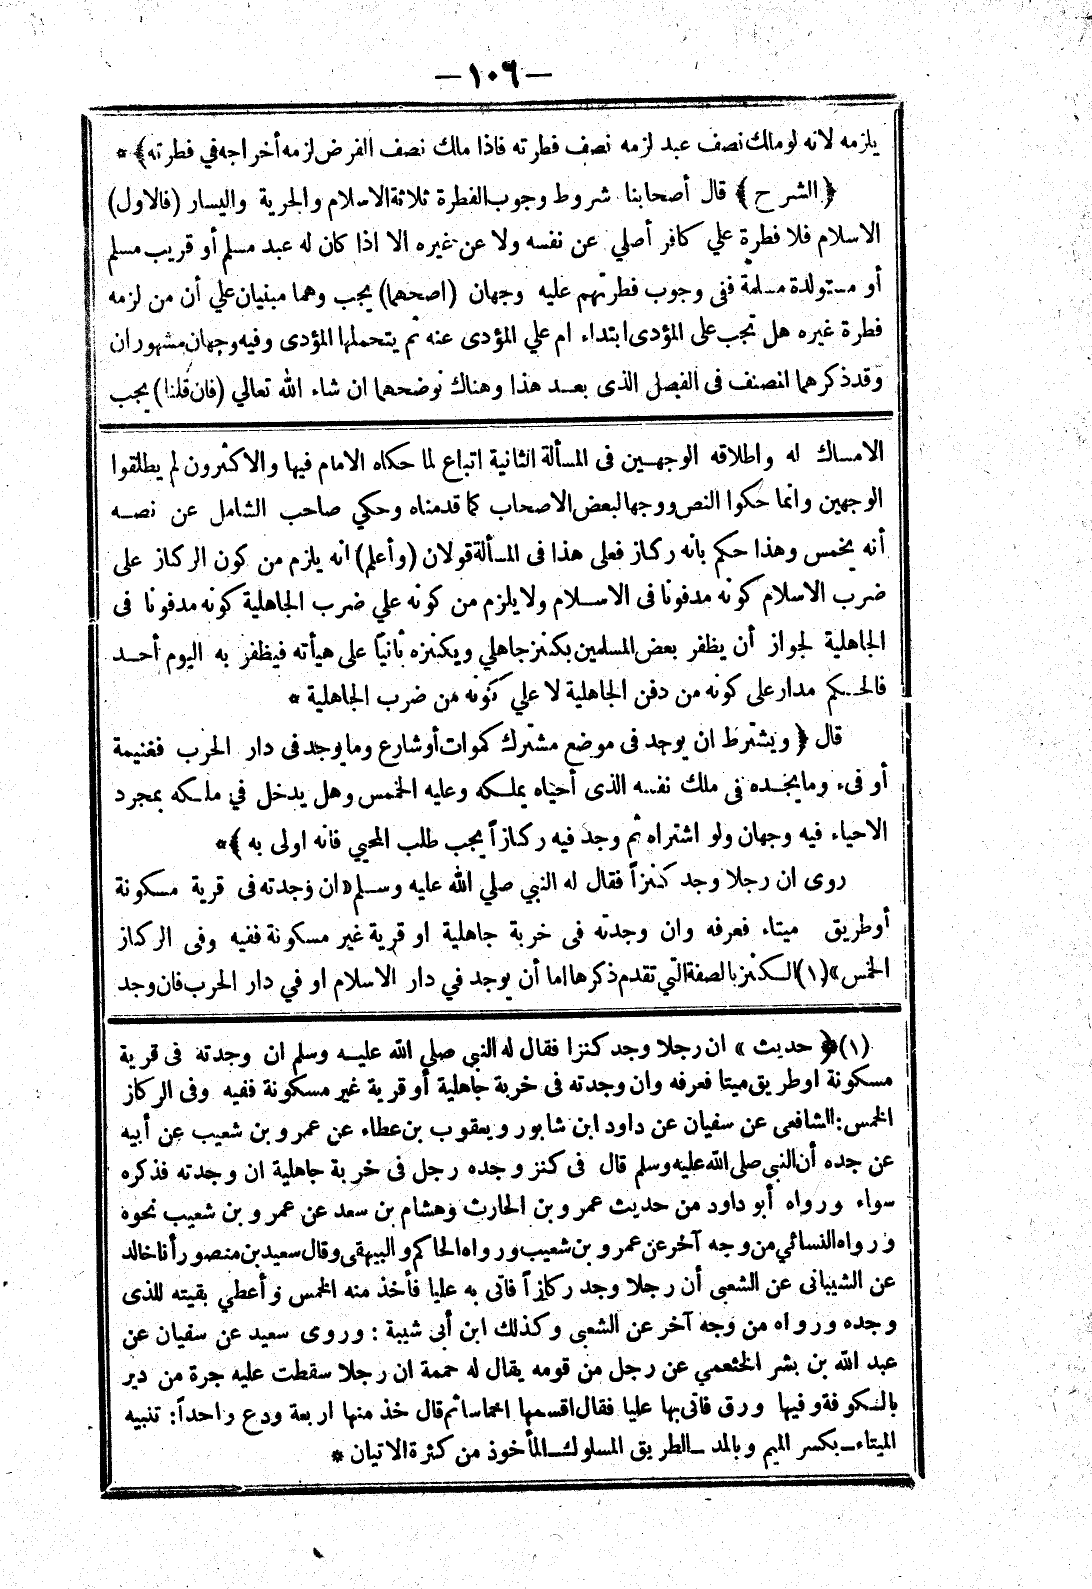 —١٠٦—
يلزمه لانه لو مالك نصف عبد لزمه نصف فطرته فاذا مالك نصف الفرض لزمه أخراجه في فطرته﴾ *
﴿ الشرح ﴾ قال أصحابنا شروط وجوب الفطرة ثلاثة الاسلام والحرية واليسار (فالاول)
الاسلام فلا فطرة علي كافر أصلي عن نفسه ولا عن غيره الا اذا كان له عبد مسلم أو قريب مسلم
أو مستولدة مسلمة ففى وجوب فطرتهم عليه وجهان (اصحهما) يجب وهما مبنيان علي أن من لزمه
فطرة غيره هل تجب على المؤدى ابتداء ام علي المؤدى عنه ثم يتحملها المؤدى وفيه وجهان مشهوران
وقد ذكرهما انصنف فى الفصل الذى بعد هذا وهناك نوضحهما ان شاء الله تعالي (فان قلنا) يجب
الامساك له واطلاقه الوجهين فى المسألة الثانية اتباع لما حكاه الامام فيها والاكثرون لم يطلقوا
الوجهين وانما حكوا النص ووجها لبعض الاصحاب كما قدمناه وحكي صاحب الشامل عن نصه
أنه يخمس وهذا حكم بانه ركاز فعلى هذا فى المسألة قولان (وأعلم) انه يلزم من كون الركاز على
ضرب الاسلام كونه مدفونا فى الاسلام ولا يلزم من كونه علي ضرب الجاهلية كونه مدفونا فى
الجاهلية لجواز أن يظفر بعض المسلمين بكنز جاهلي ويكنزه ثانياً على هيأته فيظفر به اليوم أحد
فالحكم مدار على كونه من دفن الجاهلية لا علي كونه من ضرب الجاهلية *
قال ﴿ ويشترط ان يوجد فى موضع مشترك كموات أو شارع وما يوجد فى دار الحرب فغنيمة
أو فىء وما يجده فى ملك نفسه الذى أحياه يملكه وعليه الخمس وهل يدخل في ملكه بمجرد
الاحياء فيه وجهان ولو اشتراه ثم وجد فيه ركازاً يجب طلب المحيي فانه اولى به ﴾*
روى ان رجلا وجد كنزاً فقال له النبي صلي الله عليه وسلم «ان وجدته فى قرية مسكونة
أو طريق ميتاء فعرفه وان وجدته فى خربة جاهلية او قرية غير مسكونة ففيه وفى الركاز
الخمس» (١) الكنز بالصفة التي تقدم ذكرها اما أن يوجد في دار الاسلام او في دار الحرب فان وجد
(١) ﴿ حديث » ان رجلا وجد كنزا فقال له النبي صلى الله عليه وسلم ان وجدته فى قرية
مسكونة او طريق ميتا فعرفه وان وجدته فى خربة جاهلية أو قرية غير مسكونة ففيه وفى الركاز
الخمس: الشافعى عن سفيان عن داود ابن شابور ويعقوب بن عطاء عن عمرو بن شعيب عن أبيه
عن جده أن النبي صلى الله عليه وسلم قال فى كنز وجده رجل فى خربة جاهلية ان وجدته فذكره
سواء ورواه أبو داود من حديث عمرو بن الحارث وهشام بن سعد عن عمرو بن شعيب نحوه
ورواه النسائي من وجه آخر عن عمرو بن شعيب ورواه الحاكم والبيهقى وقال سعيد بن منصور أنا خالد
عن الشيبانى عن الشعبى أن رجلا وجد ركازاً فاتى به عليا فأخذ منه الخمس وأعطي بقيته للذى
وجده ورواه من وجه آخر عن الشعبى وكذلك ابن أبى شيبة : وروى سعيد عن سفيان عن
عبد الله بن بشر الخثعمي عن رجل من قومه يقال له حممة ان رجلا سقطت عليه جرة من دير
بالكوفة وفيها ورق فاتى بها عليا فقال اقسمها اخماسا ثم قال خذ منها اربعة ودع واحداً : تنبيه
الميتاء ـ بكسر الميم وبالمد ـ الطريق المسلوك ـ المأخوذ من كثرة الاتيان *